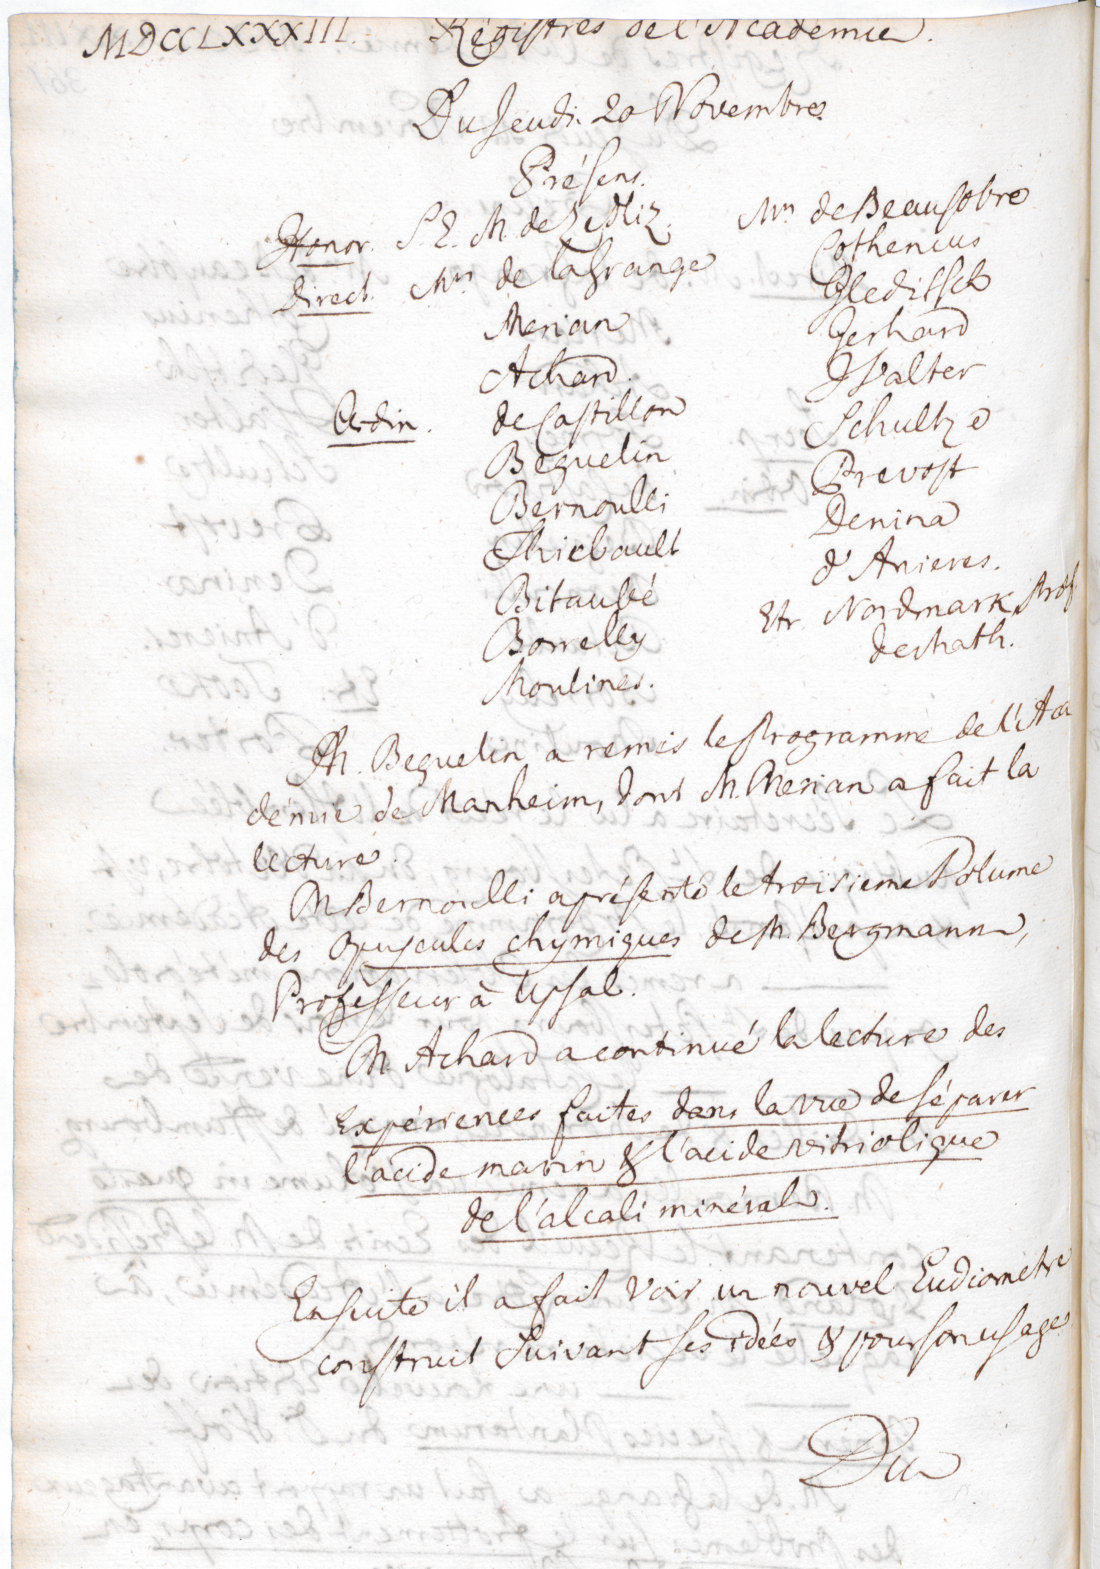 MDCCLXXXIII. Régistres de l'Academie.
Du Jeudi 20 Novembre.
Présens.
Honor. S. E. M. de Zedliz.
Direct. Mrs de la Grange
Merian
Achard.
Ordin. de Castillon
Beguelin
Bernoulli
Thiebault
Bitaubé
Borrelly
Moulines.
Mrs de Beausobre
Cothenius
Gleditsch
Gerhard
Walter
Schultze
Prevost
Denina
d'Anieres.
Etr. Nordmark Prof.
de Math.
M. Beguelin a remis le Programme de l'Aca
démie de Manheim, dont M. Merian a fait la
lecture.
M. Bernoulli a présenté le troisieme Volume
des opuscules chymiques de M. Bergmann,
Professeur à Upsal.
M. Achard a continué la lecture des
Expériences faites dans la vue de séparer
l'acide marin & l'acide vitriolique
de l'alcali minéral.
Ensuite il a fait voir un nouvel Eudiometre
construit suivant ses idées & pour son usage
Du